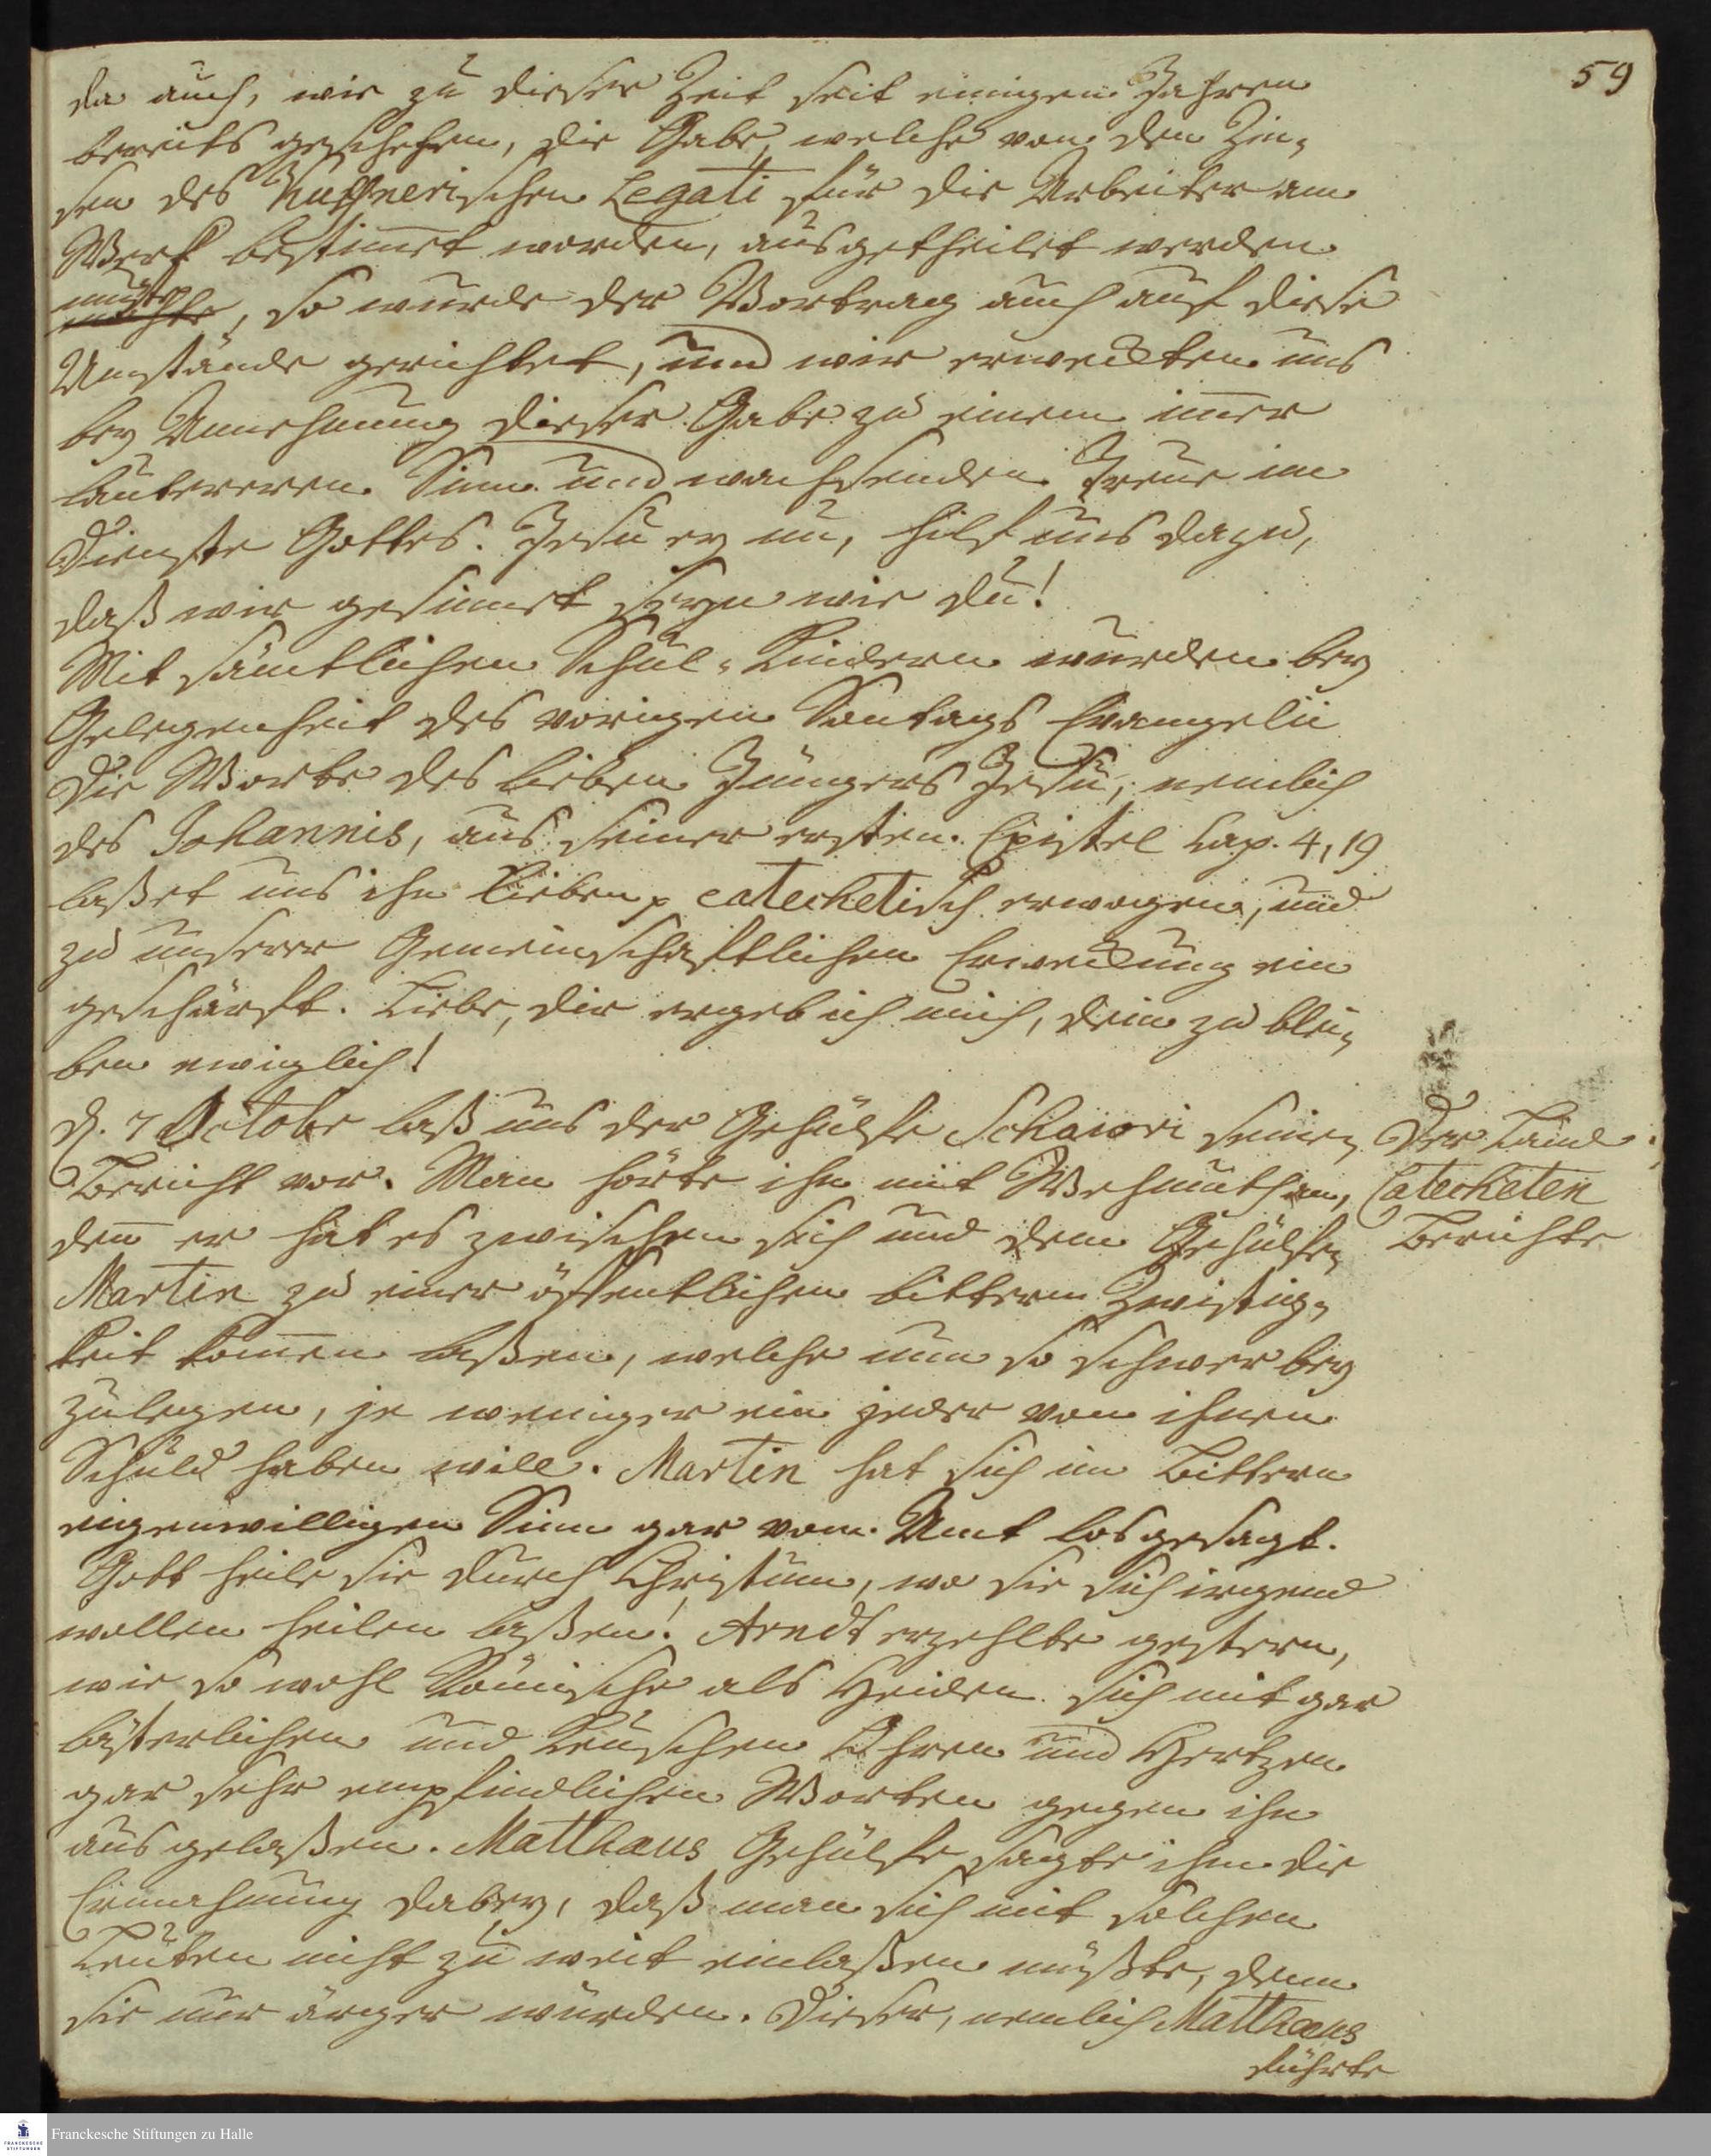 59
da auch, wie zu dieser Zeit seit einigen Jahren
bereits geschehen, die Gabe, welche von den Zin-
sen des Kuffnerischen Legati für die Arbeiter am
Werk bestimt worden, ausgetheilet werden
muste, so wurde der Vortrag auch auf diese
Umstände gerichtet, und wir erweckten uns
bey Annehmung dieser Gabe zu einem imer
lautereren Sinn und wachsenden Treue im
Dienste Gottes. Jesu ey nu, hilf uns dazu,
daß wir gesinnet seyn wie du!
Mit sämtlichen Schul-Kindern wurden bey
Gelegenheit des vorigen Sontags Evangelii
die Worte des lieben Jüngers Jesu, nemlich
des Johannis, aus seiner ersten Epistel Cap. 4, 19
laßet uns ihn lieben catechetisch erwogen, und
zu unserer Gemeinschaftlichen Erweckung ein
geschärft. Liebe, dir ergeb ich mich, dein zu blei-
ben ewiglich!
d. 7 Octobr laß uns der Gehülfe Schawri seinen
Bericht vor. Man hörte ihn mit Wehmuth an,
den er hat es zwischen sich und dem Gehülfen
Martin zu einer öffentlichen bittern Zwistig-
keit kommen laßen, welche um so schwer bey
zulegen, je weniger ein jeder von ihnen
Schuld haben will. Martin hat sich im Bittern
eigenwilligen Sinn gar vom Amt losgesagt.
Gott heile sie durch Christum, wo sie sich irgend
wollen heilen laßen! Arndt erzehlte gestern,
wie so wohl Römische als Heiden sich mit gar
lästerlichen und keuschen Ohren und Hertzen
gar sehr empfindlichen Worten gegen ihn
ausgelaßen. Matthaeus Gehülfe sagte ihm die
Ermahnung dabey, daß man sich mit solchen
Leuten nicht zu weit einlaßen müßte, denn
sie nur ärger würden. Dieser, nemlich Matthaeus
führte
Der Land-
Catecheten
Berichte
Franckesche Stiftungen zu Halle